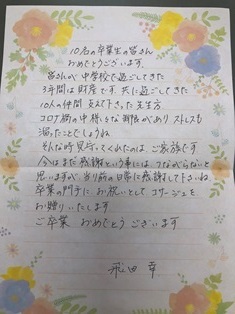 10名の卒業生の皆さん
おめでとうございます。
皆さんが中学校で過ごしてきた
3年間は財産です。共に過ごしてきた
10人の仲間 支えて下さった先生方
コロナ禍の中様々な制限があり ストレスも
溜ったことでしょうね
そんな時見守ってくれたのは、ご家族です。
今はまだ感謝という事には、つながらないと
思いますが、当り前の日常に感謝して下さいね
卒業の門手に お祝いとして コサージュを
お贈りいたします
ご卒業 おめでとう ございます
飛田幸